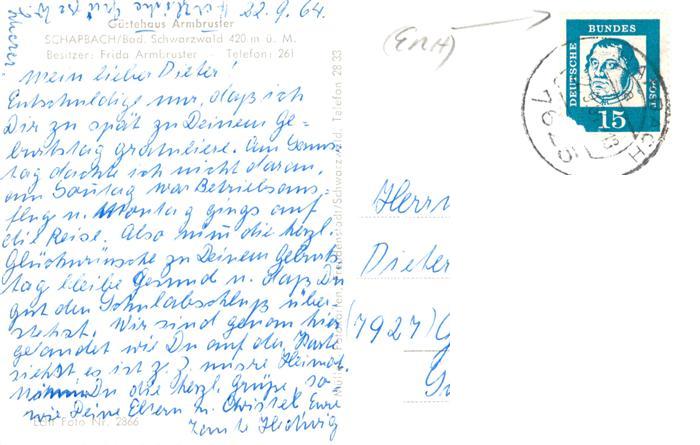 22.9.64.
Gästehaus Armbruster
SCHAPBACH/Bad. Schwarzwald 420 m ü. M.
Besitzer: Frida Armbruster Telefon: 261
Mein lieber Dieter!
Entschuldige nur, daß ich
Dir zu spät zu Deinem Ge-
burtstag gratuliere. Am Sams-
tag dachte ich nicht daran,
am Sonntag war Betriebsaus-
fluge u. Montag gings auf
die Reise. Also nimm die herzl.
Glückwünsche zu Deinem Geburts-
tag bleibe Gesund u. daß Du
gut den Schulabschluß über-
stehst. Wir sind genau hier
gelandet wie Du auf der Karte
siehst es ist z. Z. unsre Heimat.
Nimm Du die herzl. Grüße, so
wie Deine Eltern u. Christel, Eure
Tante Hedwig
Foto Nr. 2866
Schwarzwald. Telefon 2833
DEUTSCHE BUNDES POST
15
7625
Herrn
Dieter
(7927) G